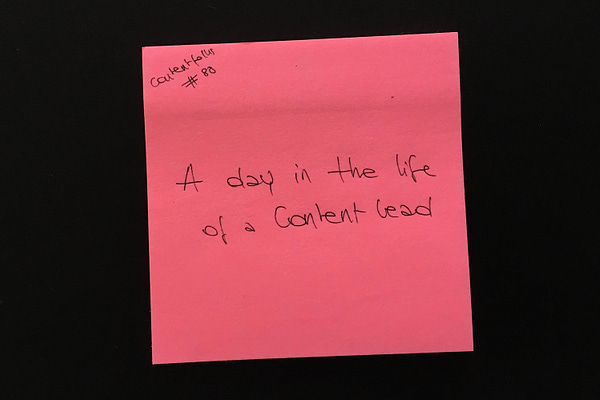 contentfolks
# 88
A day in the life
of a Content Lead